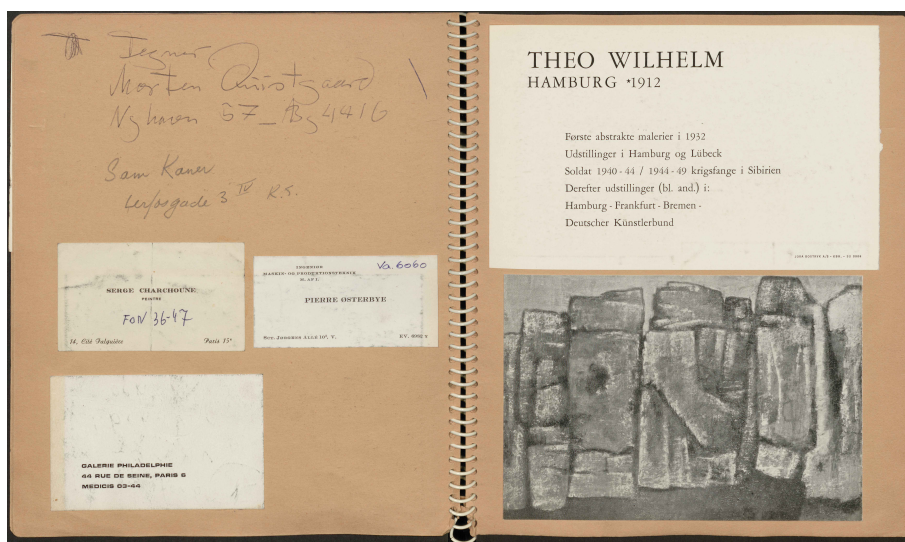 Tegner
Morten Quistgaard
Nyhavn 57_ By 4416
Sam Kaner
Lerfosgade 3 IV
SERGE CHARCHOUNE
PEINTRE
FON 36-47
14, Cité Falguière Paris 15e
Va. 6060
INGENIØR
MASKIN- OG PRODUKTIONSTEKNIK
M. AF I.
PIERRE ØSTERBYE
SCT. JØRGENS ALLE 10², V.
GALERIE PHILADELPHIE
44 RUE DE SEINE, PARIS 6
MEDICIS 03-44
THEO WILHELM
HAMBURG *1912
Første abstrakte malerier i 1932
Udstillinger i Hamburg og Lübeck
Soldat 1940-44 / 1944-49 krigsfange i Sibirien
Derefter udstillinger (bl. and.) i:
Hamburg - Frankfurt - Bremen -
Deutscher Künstlerbund